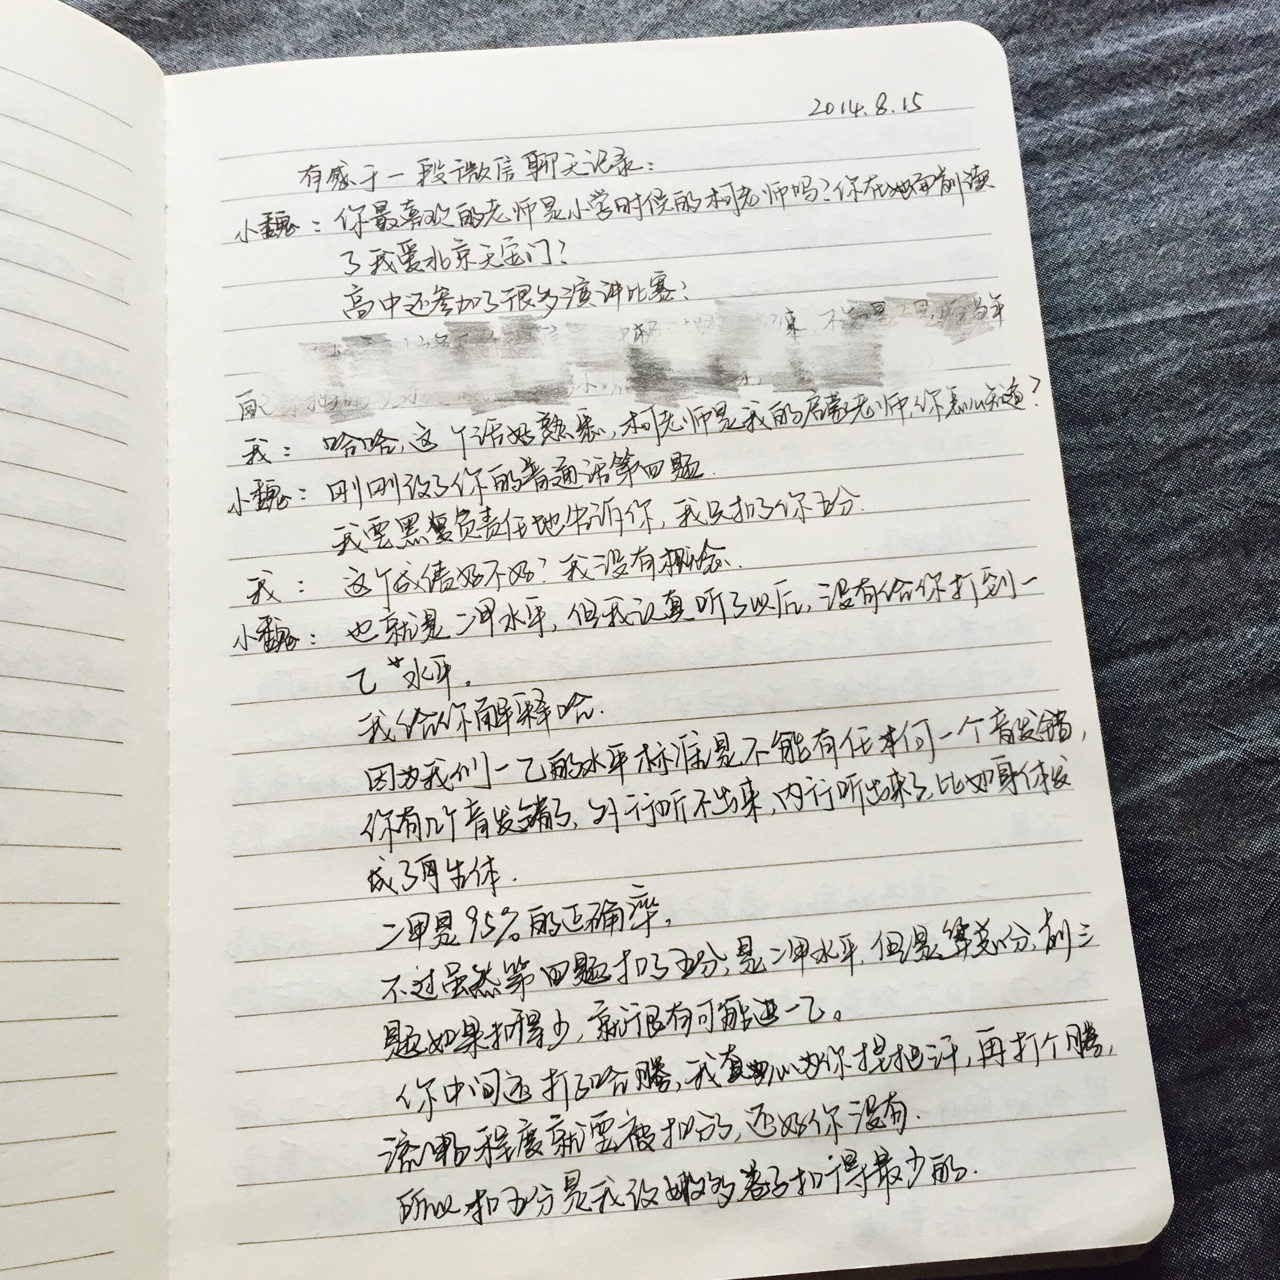 2014.8.15
有感于一段微信聊天记录：
小魏：你最喜欢的老师是小学时候的柯老师吗？你在她面前读
了我爱北京天安门？
高中还参加了很多演讲比赛？
当年
我：哈哈，这个话好熟悉，柯老师是我的启蒙老师，你怎么知道？
小魏：刚刚改了你的普通话第四题.
我要黑负责任地告诉你，我只扣了你五分.
我：这个成绩好不好？我没有概念.
小魏：也就是二甲水平，但我认真听了以后，没有给你打到一
乙水平.
我给你解释哈.
因为我们一乙的水平标准是不能有任何一个音发错，
你有几个音发错了，外行听不出来，内行听出来了，比如身体发
成了再生体.
二甲是95%的正确率，
不过虽然第四题扣了五分，是二甲水平，但是算总分，前三
题如果扣得少，就很有可能进一乙。
你中间还打了哈腾，我真为你捏把汗，再打个腾，
流畅程度就要被扣分了，还好你没有.
所以扣五分是我改多卷子扣得最少的.